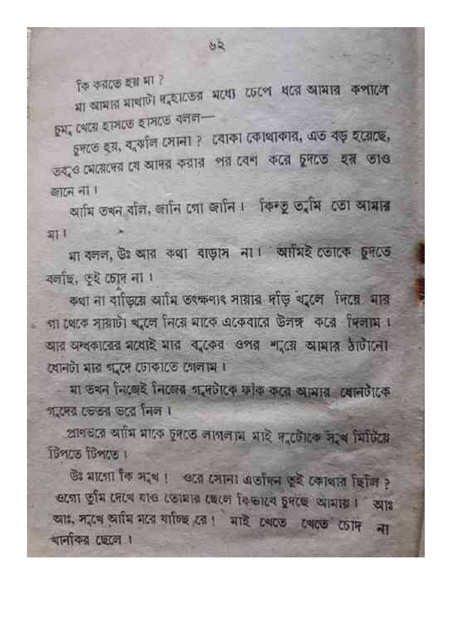 ৬২
কি করতে হয় মা ?
মা আমার মাথাটা দুহাতের মধ্যে চেপে ধরে আমার কপালে
চুমু খেয়ে হাসতে হাসতে বলল—
চুদতে হয়, বুঝলি সোনা ? বোকা কোথাকার, এত বড় হয়েছে,
তবুও মেয়েদের যে আদর করার পর বেশ করে চুদতে হয় তাও
জানে না ।
আমি তখন বলি, জানি গো জানি । কিন্তু তুমি তো আমার
মা ।
মা বলল, উঃ আর কথা বাড়াস না । আমিই তোকে চুদতে
বলছি, তুই চোদ না ।
কথা না বাড়িয়ে আমি তৎক্ষণাৎ সায়ার দড়ি খুলে দিয়ে মার
গা থেকে সায়াটা খুলে নিয়ে মাকে একেবারে উলঙ্গ করে দিলাম ।
আর অন্ধকারের মধ্যেই মার বুকের ওপর শুয়ে আমার ঠাটানো
ধোনটা মার গুদে ঢোকাতে গেলাম ।
মা তখন নিজেই নিজের গুদটাকে ফাঁক করে আমার ধোনটাকে
গুদের ভেতর ভরে নিল ।
প্রাণভরে আমি মাকে চুদতে লাগলাম মাই দুটোকে সুখ মিটিয়ে
টিপতে টিপতে ।
উঃ মাগো কি সুখ ! ওরে সোনা এতদিন তুই কোথায় ছিলি ?
ওগো তুমি দেখে যাও তোমার ছেলে কিভাবে চুদছে আমায় । আঃ
আঃ, সুখে আমি মরে যাচ্ছি রে ! মাই খেতে খেতে চোদ না
খানকির ছেলে ।